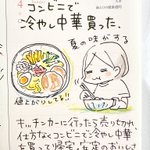 4
コンビニで
冷やし中華買った.
夏の味がする
値上がりしてる!!
キッチンカーに行ったら売り切れ
仕方なくコンビニで冷やし中華
を買って帰宅。